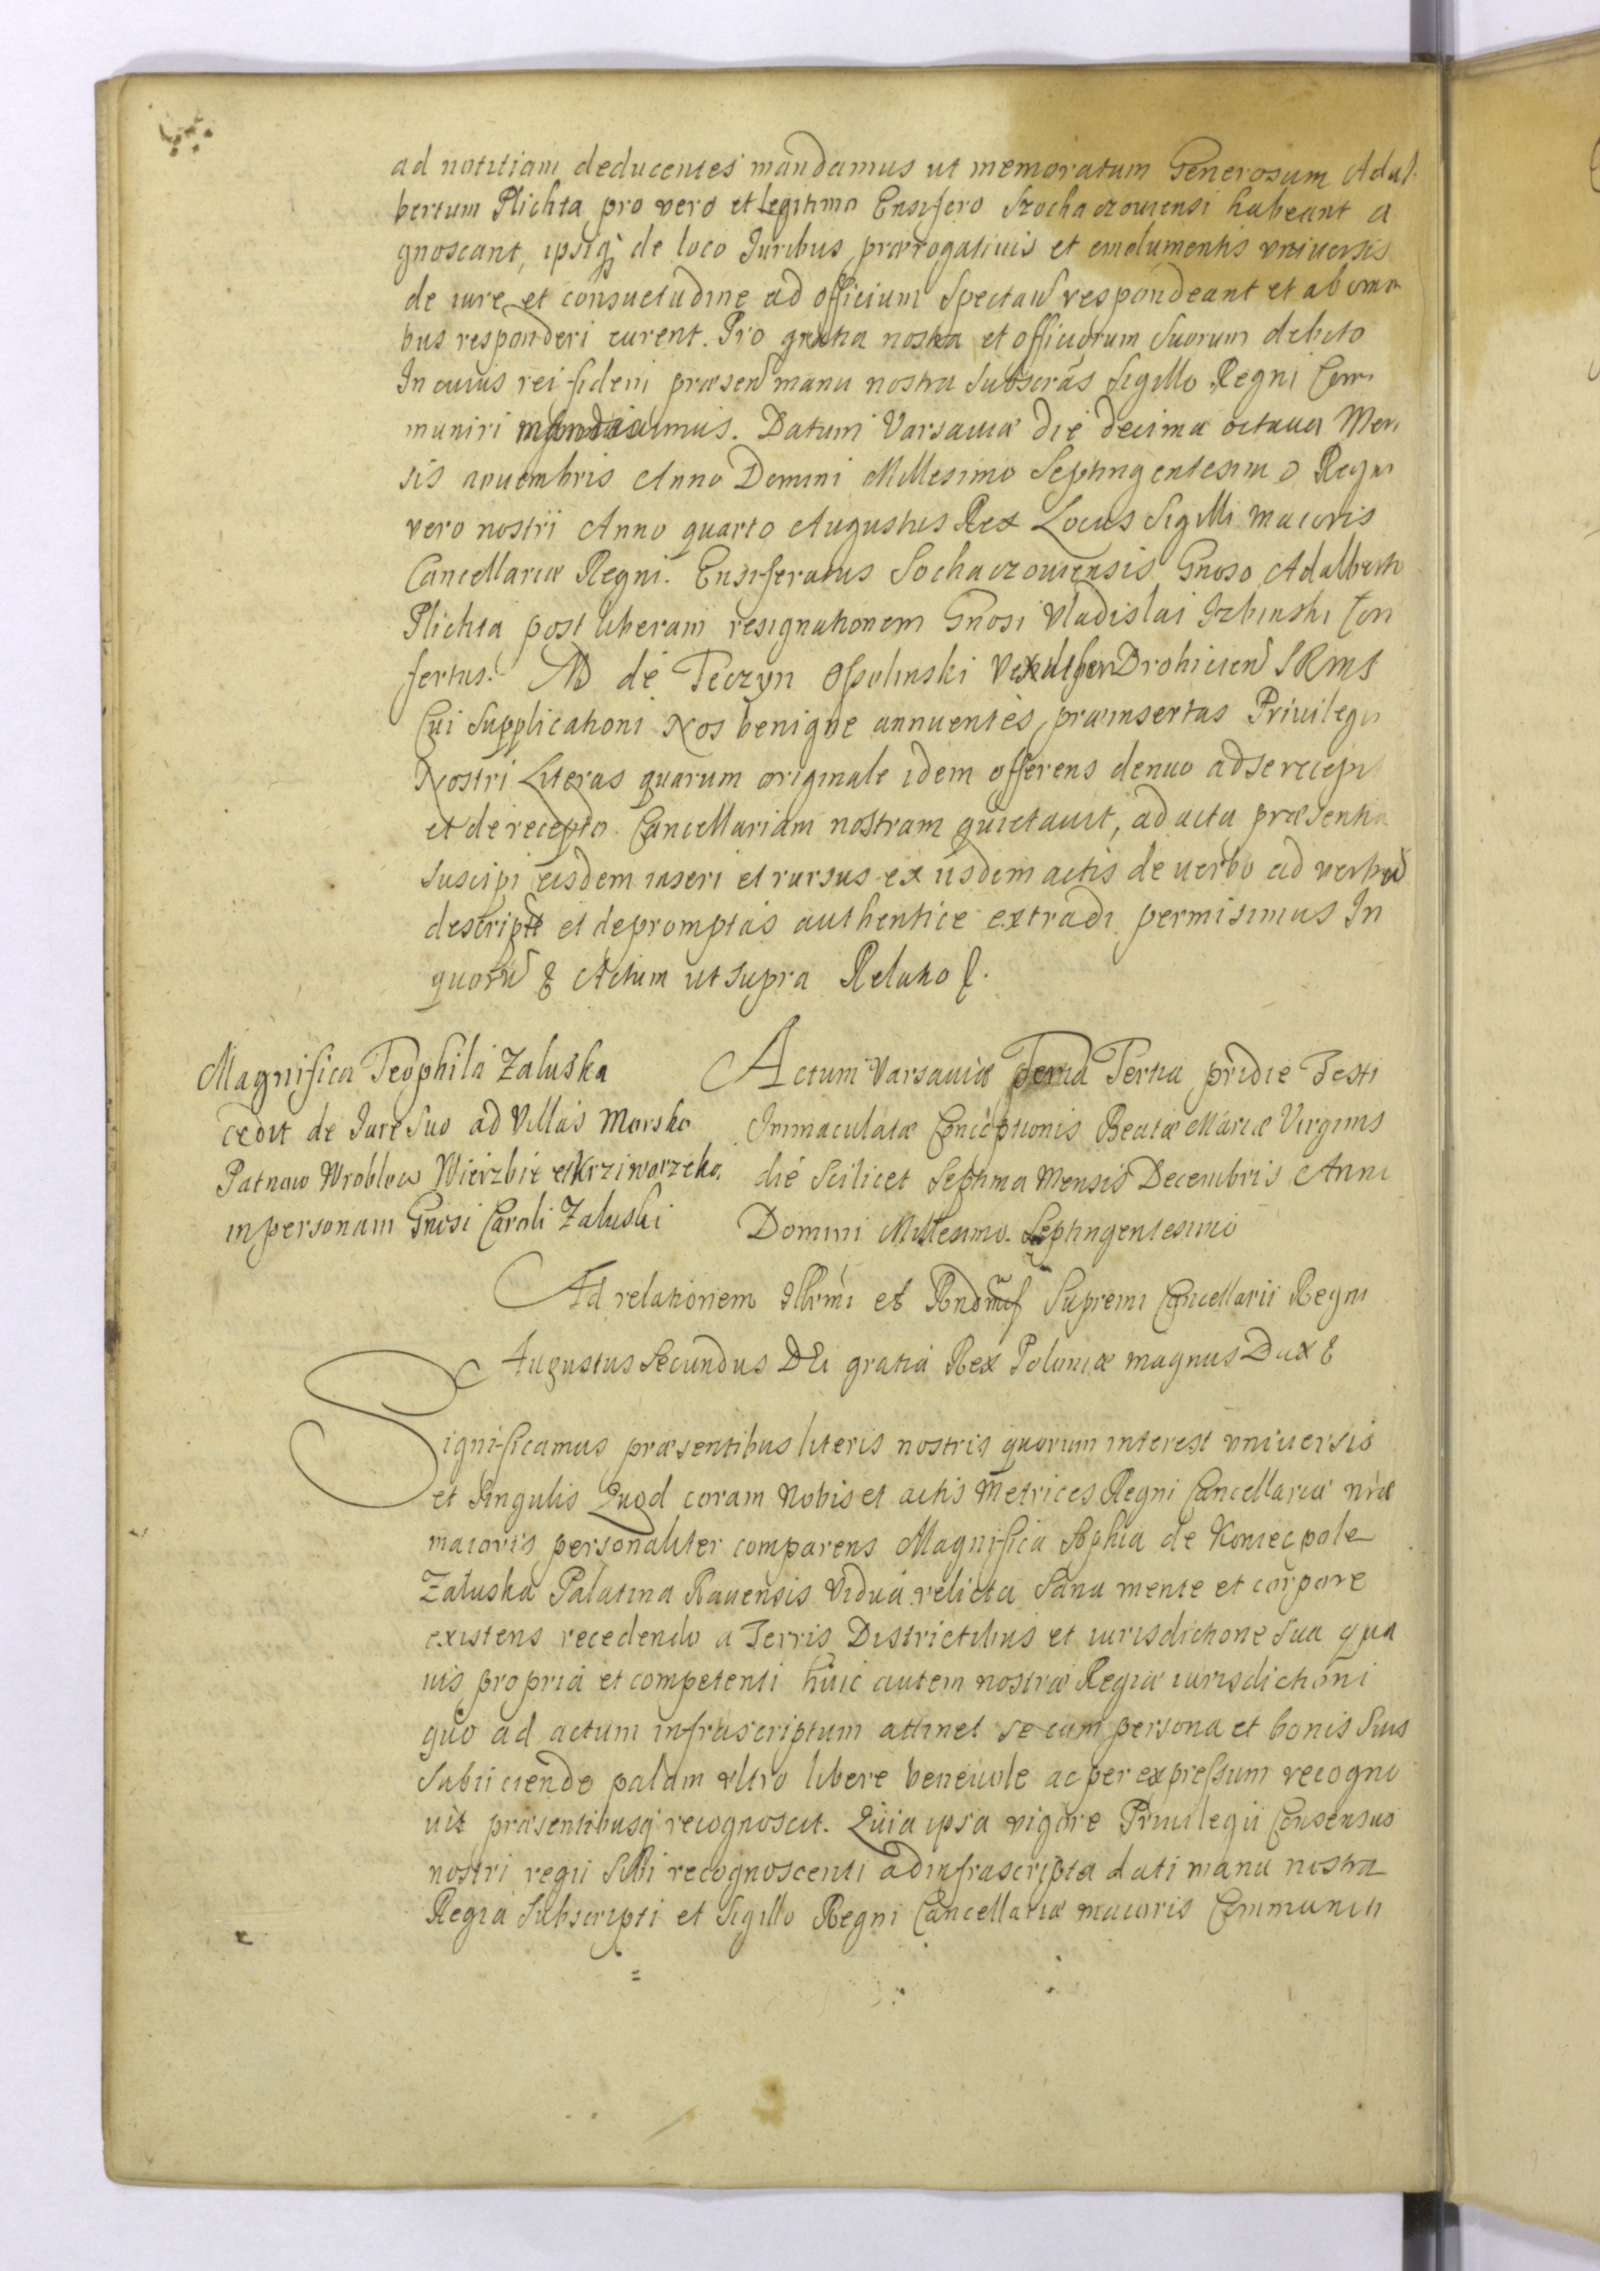 ad notitiam deducentes mandamus ut memoratum Generosum Adal-
bertum Plichta pro vero et Legitimo Ensifero Szochaczouiensi habeant a
gnoscant, ipsiq; de loco Iuribus prærogatiuis et emolumentis vniuersis
de iure et consuetudine ad officium Spectan respondeant et ab omni
bus responderi curent. Pro gratia nostra et officiorum Suorum debito
In cuius rei fidem præsen manu nostra Subscras Sigillo Regni Com
muniri mandauimus. Datum Varsauiæ die decima octaua Men
sis nouembris Anno Domini Millesimo Septingentesimo Regni
vero nostri Anno quarto Augustus Rex Locus Sigilli maioris
Cancellariæ Regni. Ensiferatus Sochaczouiensis Gnoso Adalberto
Plichta post liberam resignationem Gnosi Vladislai Izbinski Con
fertur. M de Teczyn Ossolinski Vexillifer Drohicien SRMS
Cui Supplicationi Nos benigne annuentes, præinsertas Priuilegii
Nostri Literas quarum originale idem offerens denuo ad se recepit
et de recepto Cancellariam nostram quietauit, ad acta præsentia
Suscipi eisdem inseri et rursus ex iisdem actis de uerbo ad verbu
descript et depromptas authentice extradi permisimus In
quoru & Actum ut supra Relatio &.
Magnifica Teophila Zaluska
cedit de Iure Suo ad Villas Morsko
Patnow Wroblow Wierzbie et Krziworzeka
in personam Gnosi Caroli Zaluski
Actum Varsauiæ Feria Tertia pridie Festi
Immaculatæ Conceptionis Beatæ Mariæ Virginis
die Scilicet Septima Mensis Decembris Anni
Domini Millesimo Septingentesimo
Ad relationem Illrmi et Rndmi Supremi Cancellarii Regni
Augustus Secundus DEi gratia Rex Poloniæ magnus Dux &
Significamus præsentibus literis nostris quorum interest vniuersis
et Singulis Quod coram Nobis et actis Metrices Regni Cancellariæ nræ
maioris personaliter comparens Magnifica Sophia de Koniecpole
Zaluska Palatina Rauensis Vidua relicta Sana mente et corpore
existens recedendo a Terris Districtibus et iurisdictione Sua qua
uis propria et competenti huic autem nostræ Regiæ iurisdictioni
quo ad actum infrascriptum attinet se cum persona et bonis Suis
Subiiciendo palam vltro libere beneuole ac per expressum recogno
uit præsentibusq recognoscit. Quia ipsa vigore Priuilegii Consensus
nostri regii Sibi recognoscenti ad infrascripta dati manu nostra
Regia Subscripti et Sigillo Regni Cancellariæ maioris Communiti